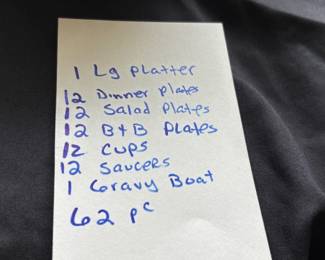 1 Lg Platter
12 Dinner Plates
12 Salad Plates
12 B+B Plates
12 Cups
12 Saucers
1 Gravy Boat
62 pc